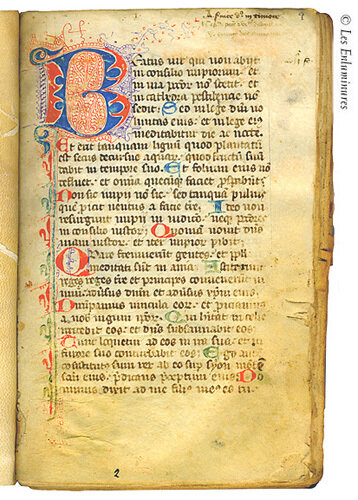 Beatus vir qui non abiit
in consilio impiorum et
in via pccoru no stetit et
in cathedra pestilencie no
sedit Sed in lege dni
volutas eius et in lege eius
meditabitur die ac nocte
Et erit tanquam lignu quod plantatu
est secus decursus aquar quod fructu suu
dabit in tempore suo Et folium eius no
defluet et omia quecuq faciet prosperabut
Non sic impii no sic sed tanqua puluis
que picit ventus a facie tre Ideo non
resurgunt impii in iudicio neq pctores
in consilio iustor Quoniam novit dns
viam iustor et iter impior pibit
Quare fremuerunt gentes et ppli
meditati sut in ania Astiterut
reges tre et principes convenerut in
unu adusus dnm et adusus xpm eius
Dirupamus vincula eor et piciamus
a nob iugum ipor Qui habitat in celis
irridebit eos et dns subsannabit eos
Tunc loquetur ad eos in ira sua et in
furore suo conturbabit eos Ego aut
constitutus sum rex ab eo sup syon monte
sanctu eius pdicans preceptum eius Do
minus dixit ad me filius meus es tu
2
© Les Enluminures